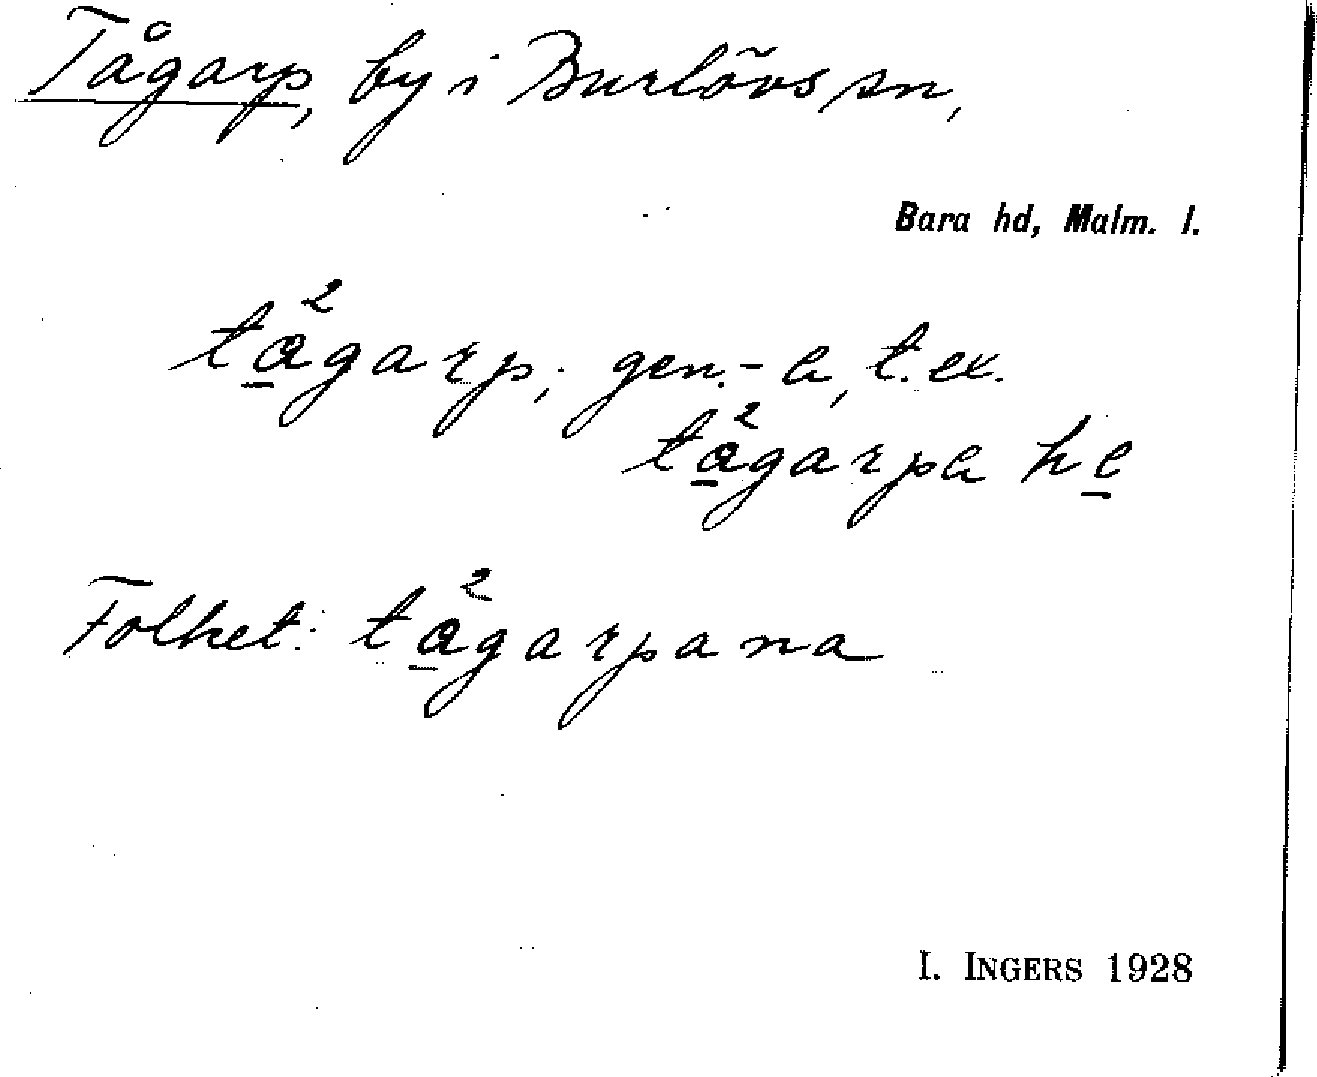 Tågarp, by i Burlövs sn,
Bara hd, Malm. l.
ta̱²garp; gen. -a, t. ex.
ta̱²garpa he̱
Folket: ta̱²garpana
I. INGERS 1928